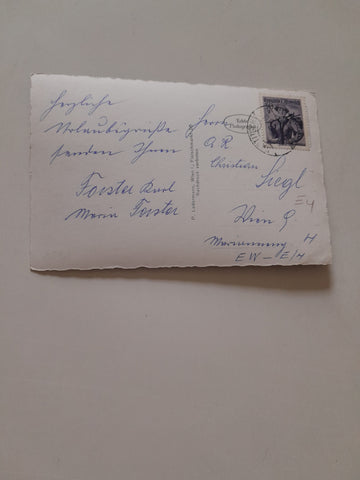 Herzliche
Urlaubsgrüße
senden Ihnen
Forster Karl
Maria Forster
P. Ledermann, Wien I, Fleischmarkt
Nachdruck verboten
Herrn
A R
Christian
Siegl
E4
Wien
H
EW - E/4